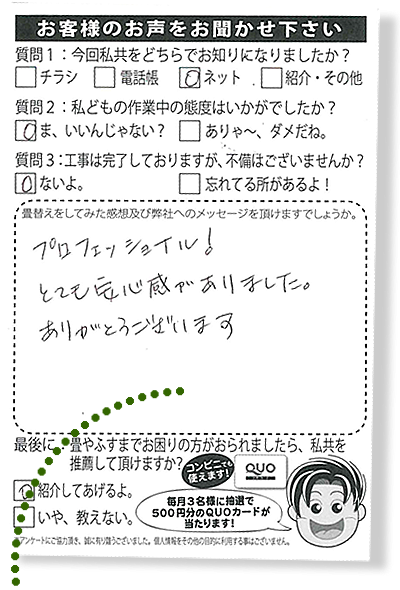 お客様のお声をお聞かせ下さい
質問1：今回私共をどちらでお知りになりましたか？
チラシ 電話帳 ネット 紹介・その他
質問2：私どもの作業中の態度はいかがでしたか？
ま、いいんじゃない？ ありゃ〜、ダメだね。
質問3：工事は完了しておりますが、不備ほございませんか？
ないよ。 忘れてる所があるよ！
畳替えをしてみた感想及び弊社へのメッセージを頂けますでしょうか。
プロフェッショナル！
とても安心感がありました。
ありがとうございます
最後に、畳やふすまでお困りの方がおられましたら、私共を
推薦して頂けますか？
コンビニでも
使えます！
QUO
紹介してあげるよ。
いや、教えない。
毎月3名様に抽選で
500円分のQUOカードが
当たります！
アンケートにご協力頂き、誠に有り難うございました。個人情報をその他の目的に利用する事はございません。